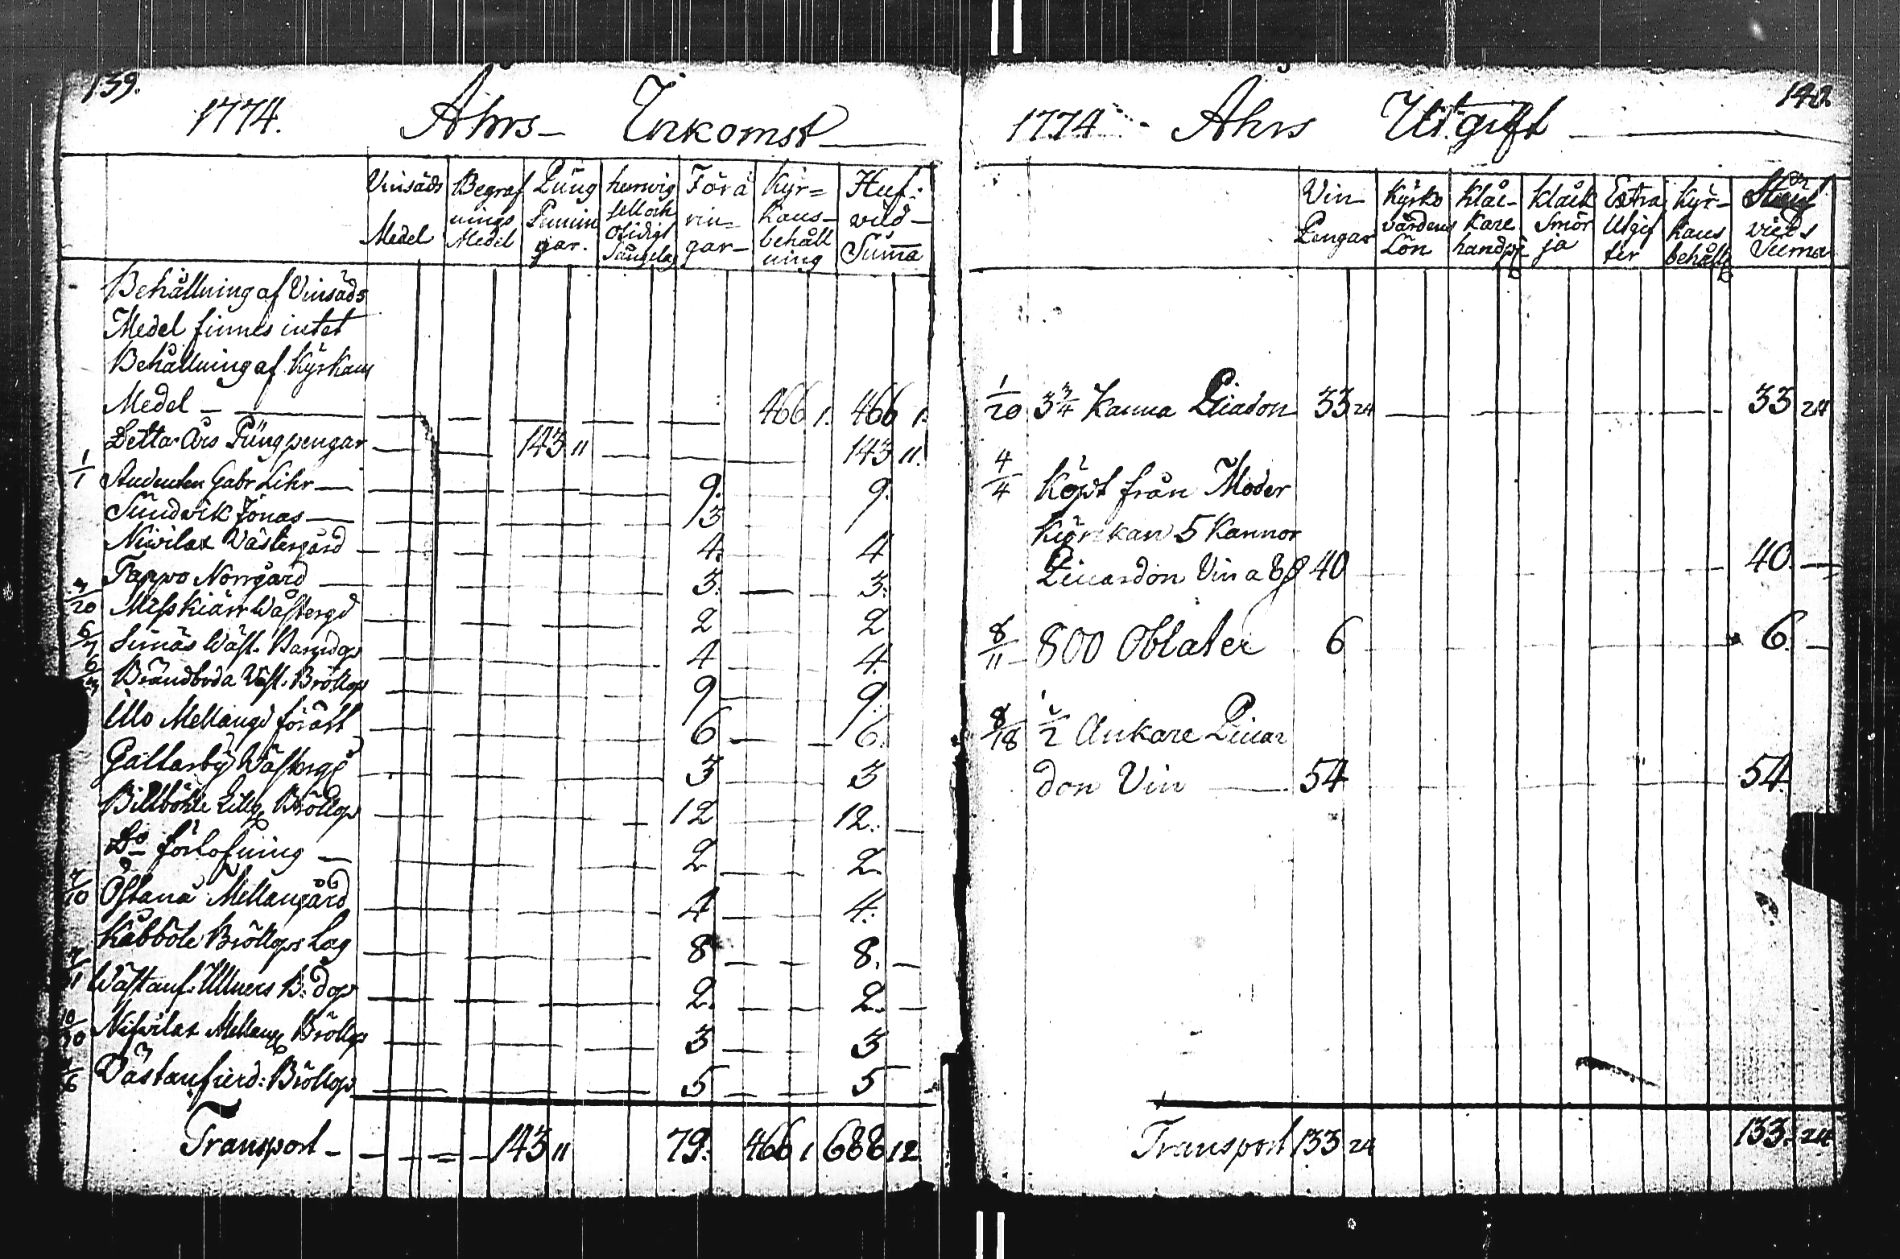 139.
1774. Åhrs Inkomst
Vinsäds Medel
Begraf nings Medel
Pung Pennin gar.
Föräringar
Kyrkans behållning
Hufvud Suma
Behållning af Vinsäds
Medel finnes intet
Behållning af Kyrkans
Medel 466 1. 466 1.
Detta Års Pungpengar 143 11 143 11.
1/1 Studenten Gabr Lihr 9. 9.
Sundvik Jonas 3
Nivilax Västergård 4. 4
Tappo Norrgård 3. 3.
Misskiärr Wästergd 2 2
6/7 Simäs Wäst. Barndop 4 4.
Brändboda Väst. Bröllop 9 9.
Illo Mellangd förärt 6 6.
Galtarby Wästergd 3 3
Billböhle Lillg Bröllop 12 12.
Do förlofning 2 2
Östanå Mellangård 4 4.
Kåbböle Bröllops Lag 8 8.
Wästanf. Ullners B: dop 2. 2.
Nivilax Mellang Bröllop 3 3
Västanfierd: Bröllop 5 5
Transport 143 11 79. 466 1 688 12
140.
1774 Åhrs Utgift
Vin Pengar
Kyrko värdens Lön
Klåckare
Klåck Smör ja
Extra Utgifter
Kyrkans behålln
Hufvuds Suma
1/20 3 3/4 Kanna Picadon 33 24 33 24
4/4 Köpt från Moder
Kyrkan 5 Kannor
Picardon Vin a 8 40 40.
8/11 800 Oblater 6 6.
8/18 1/2 Ankare Picar
don Vin 54 54.
Transport 133 24 133. 24